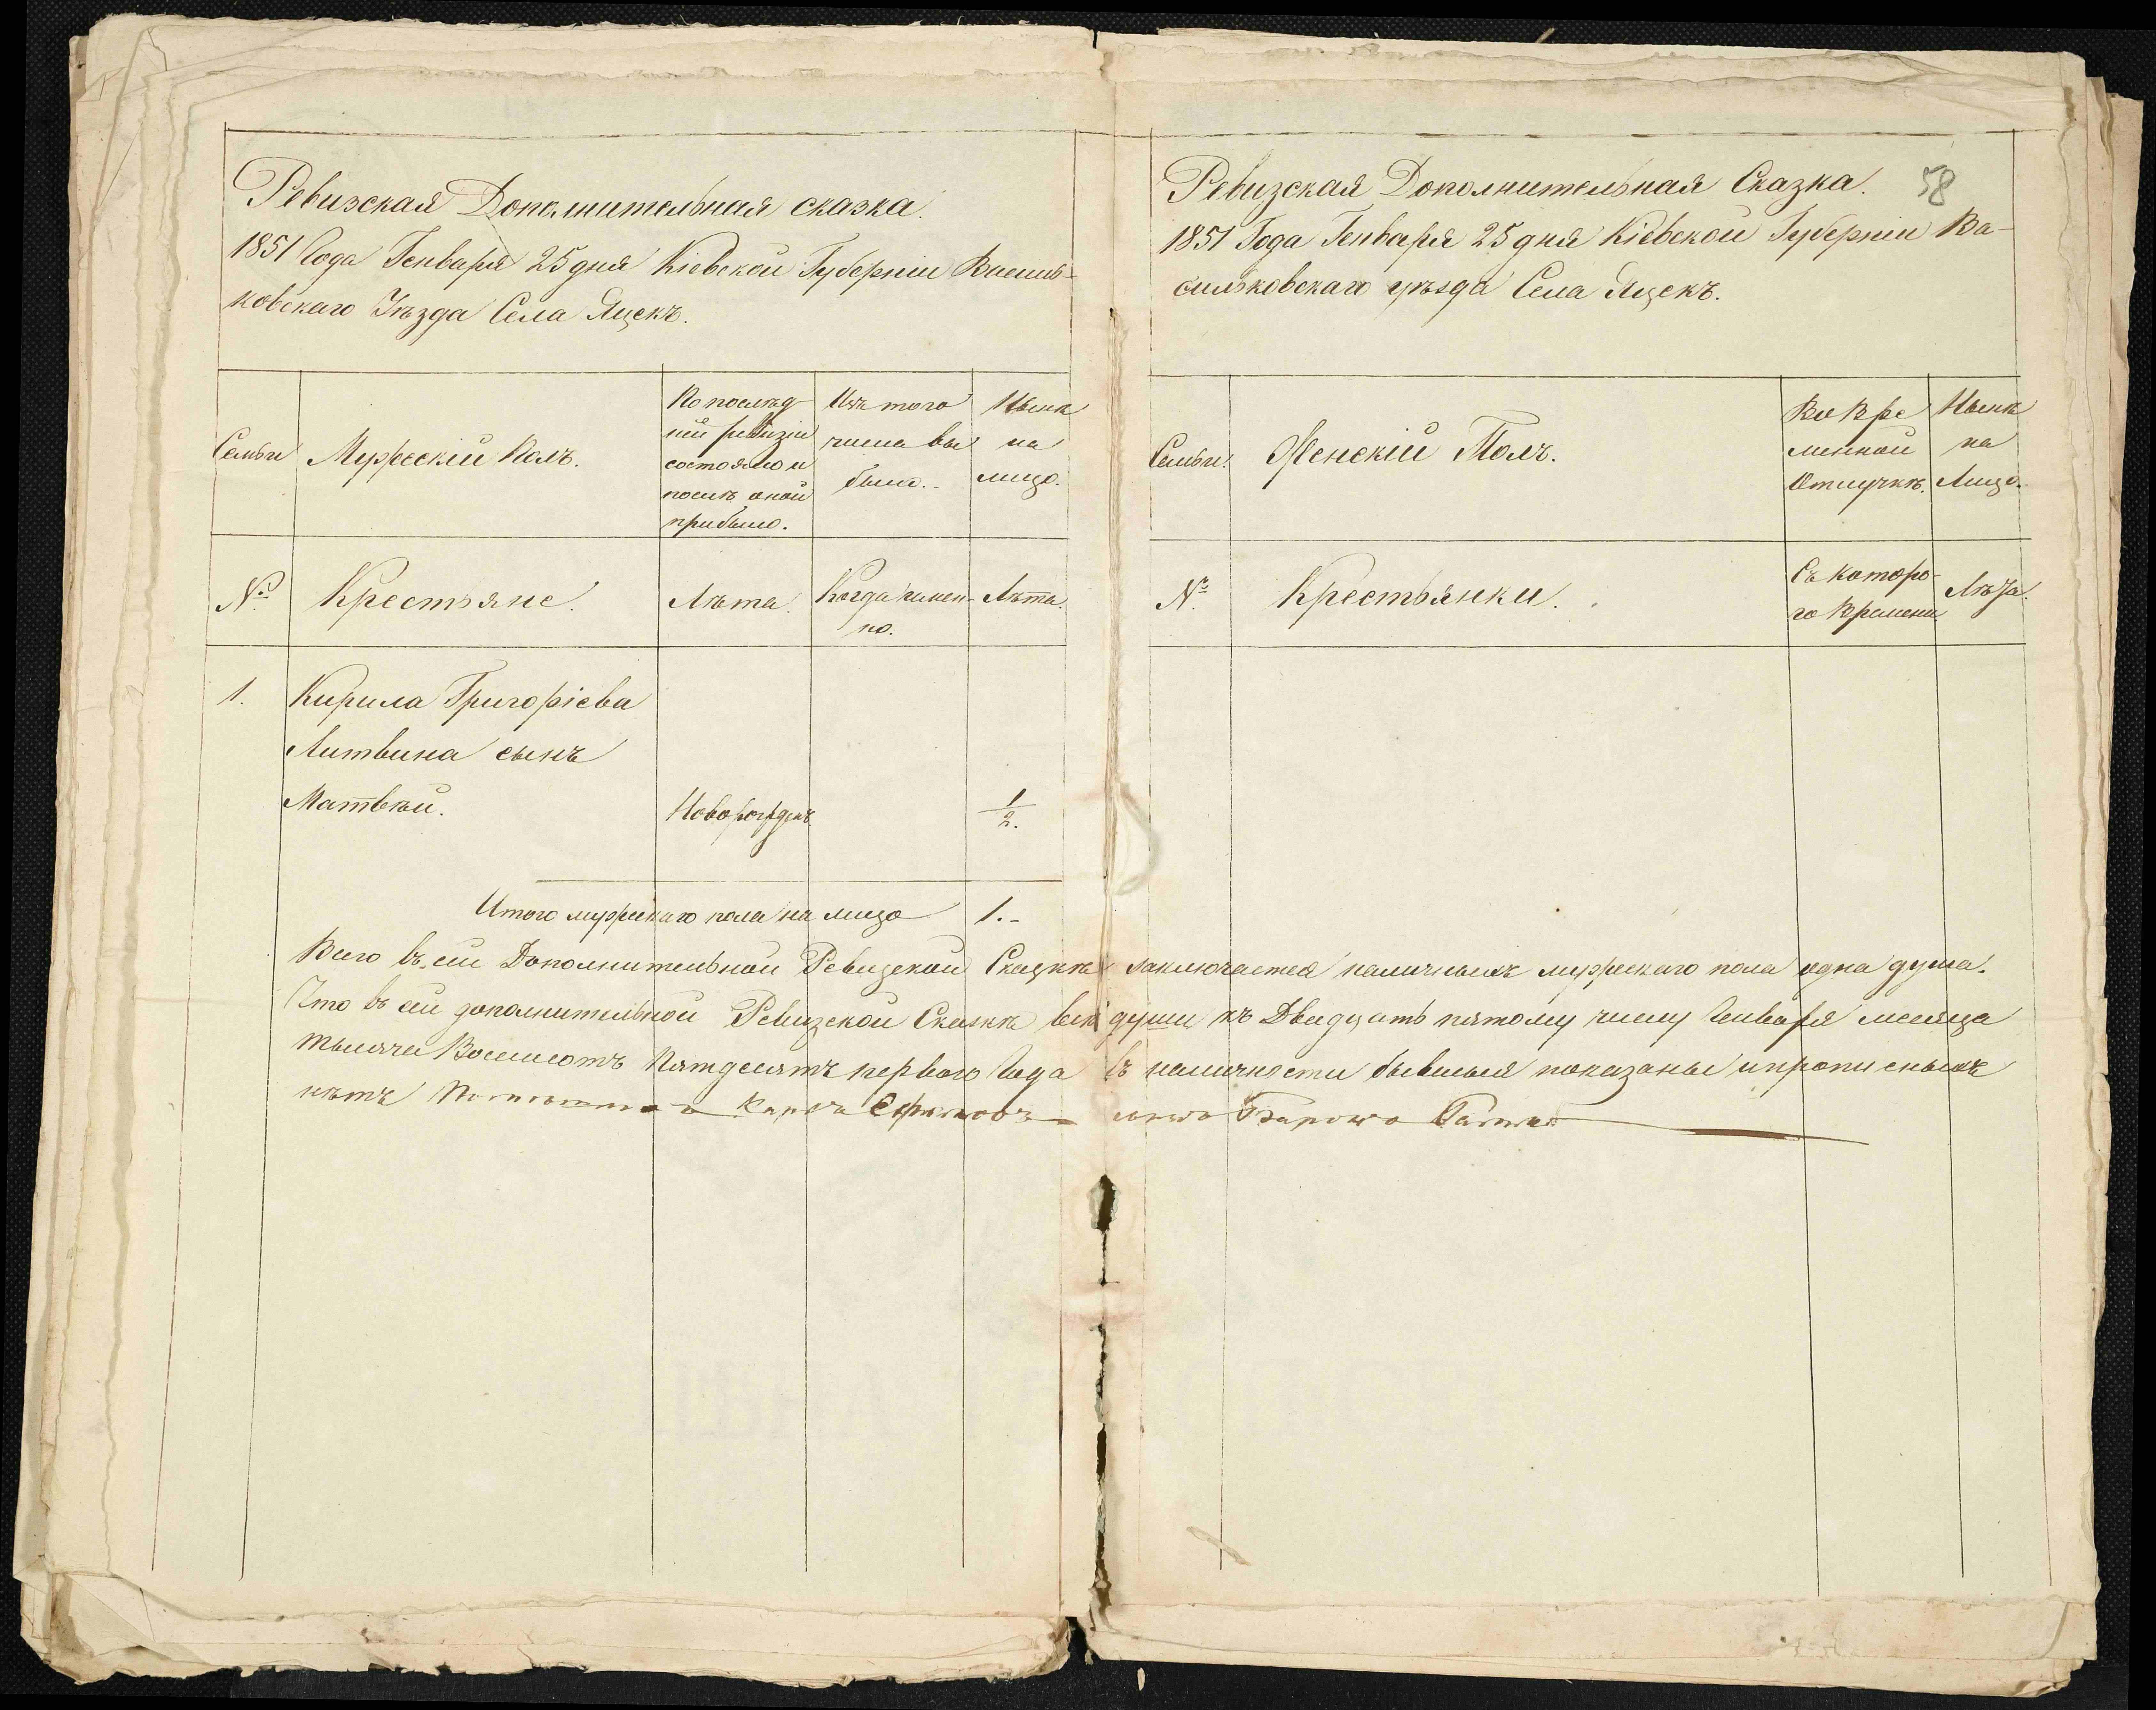 Ревизская Дополнительная сказка.
1851 Года Генваря 25 дня Кіевской Губерніи Василь-
ковскаго Уѣзда Села Яцекъ.
Семьи
Мужескій Полъ.
По послѣд
ней ревизіи
состояло и
послѣ оной
прибыло.
Изъ того
числа вы
было.
Нынѣ
на
лицо.
№
Крестьяне.
Лѣта.
Когда имен-
но.
Лѣта.
1. Кирила Григоріева
Литвина сынъ
Матвѣй. Новорожденъ 1/2.
Итого мужескаго пола на лицо 1.-
Ревизская Дополнительная Сказка. 58
1851 Года Генваря 25 дня Кіевской Губерніи Ва-
сильковскаго уѣзда Села Яцекъ.
Семьи.
Женскій Полъ.
Во Вре
менной
Отлучкѣ.
Нынѣ
на
Лицо.
№
Крестьянки.
Съ которо-
го Времени
Лѣта.
Всего въ сей Дополнительной Ревизской Сказкѣ заключается наличныхъ мужескаго пола одна душа.
Что въ сей дополнительной Ревизской Сказкѣ всѣ души къ Двадцать пятому числу Генваря месяца
тысяча Восемсотъ Пятдесятъ перваго Года въ наличности бывшыя показаны и прописныхъ
нѣтъ Карлъ